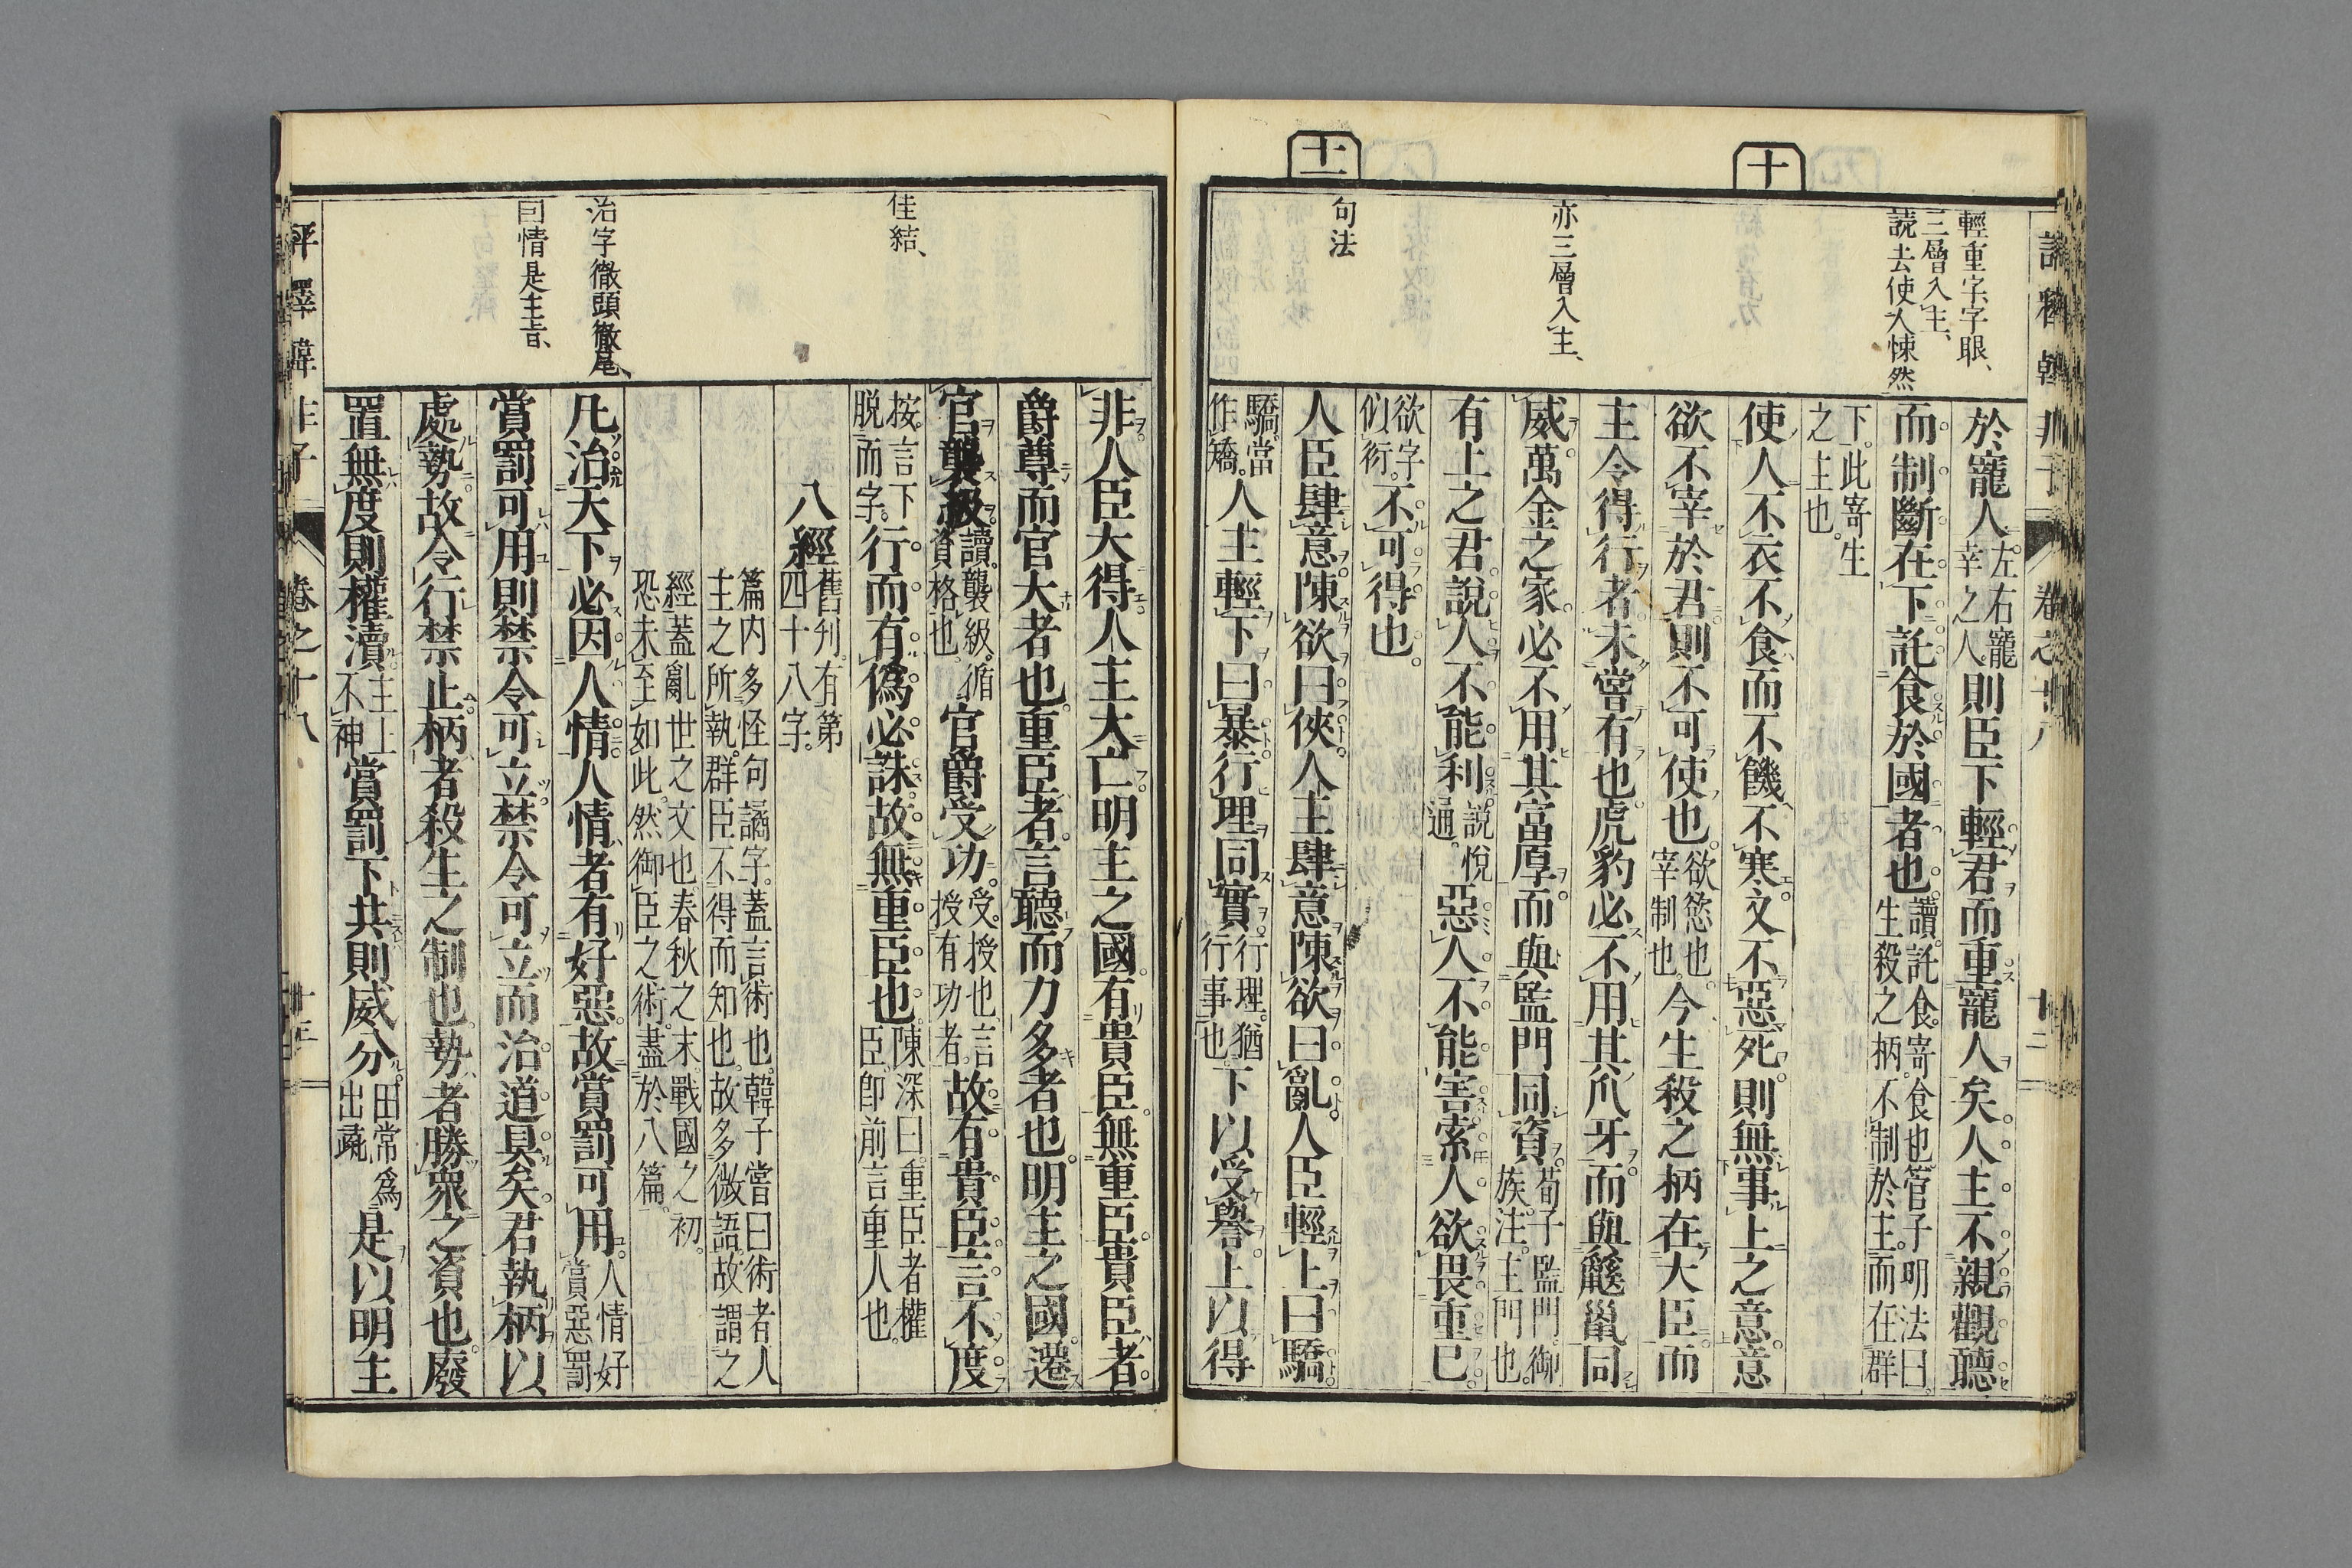 十
十一
輕重字字眼、
三層入主、
読去使人悚然
亦三層入主、
句法
於寵人左右寵幸之人則臣下輕君而重寵人矣人主不親觀聽
而制斷在下託食於國者也讀託食寄食也管子明法曰生殺之柄不制於主而在群
下此寄生之主也
使人不衣不食而不饑不寒文不惡死則無事上之意意
欲不宰於君則不可使也欲慾也宰制也今生殺之柄在大臣而
主令得行者未嘗有也虎豹必不用其爪牙而與鼷鼠同
威萬金之家必不用其富厚而與監門同資荀子監門御族注主門也
有土之君說人不能利說悅通惡人不能害索人欲畏重己
欲字似衍不可得也
人臣肆意陳欲曰俠人主肆意陳欲曰亂人臣輕上曰驕
驕當作矯人主輕下曰暴行理同實行理猶行事也下以受譽上以得
佳結、
治字徹頭徹尾、
囘情是主旨、
非人臣大得人主大亡明主之國有貴臣無重臣貴臣者
爵尊而官大者也重臣者言聽而力多者也明主之國遷
官襲級讀襲級循資格也官爵受功受授也言授有功者故有貴臣言不度
按言下脱而字行而有僞必誅故無重臣也陳深曰重臣者權臣卽前言重人也
八經舊刋有第四十八字
篇内多怪句譎字蓋言術也韓子嘗曰術者人主之所執群臣不得而知也故多微語故謂之
經蓋亂世之文也春秋之末戰國之初恐未至如此然御臣之術盡於八篇
凡治天下必因人情人情者有好惡故賞罰可用人情好賞惡罰
賞罰可用則禁令可立禁令可立而治道具矣君執柄以
處勢故令行禁止柄者殺生之制也勢者勝衆之資也廢
置無度則權瀆主上不神賞罰下共則威分田常爲出彘是以明主
評釋韓非子
卷之十八